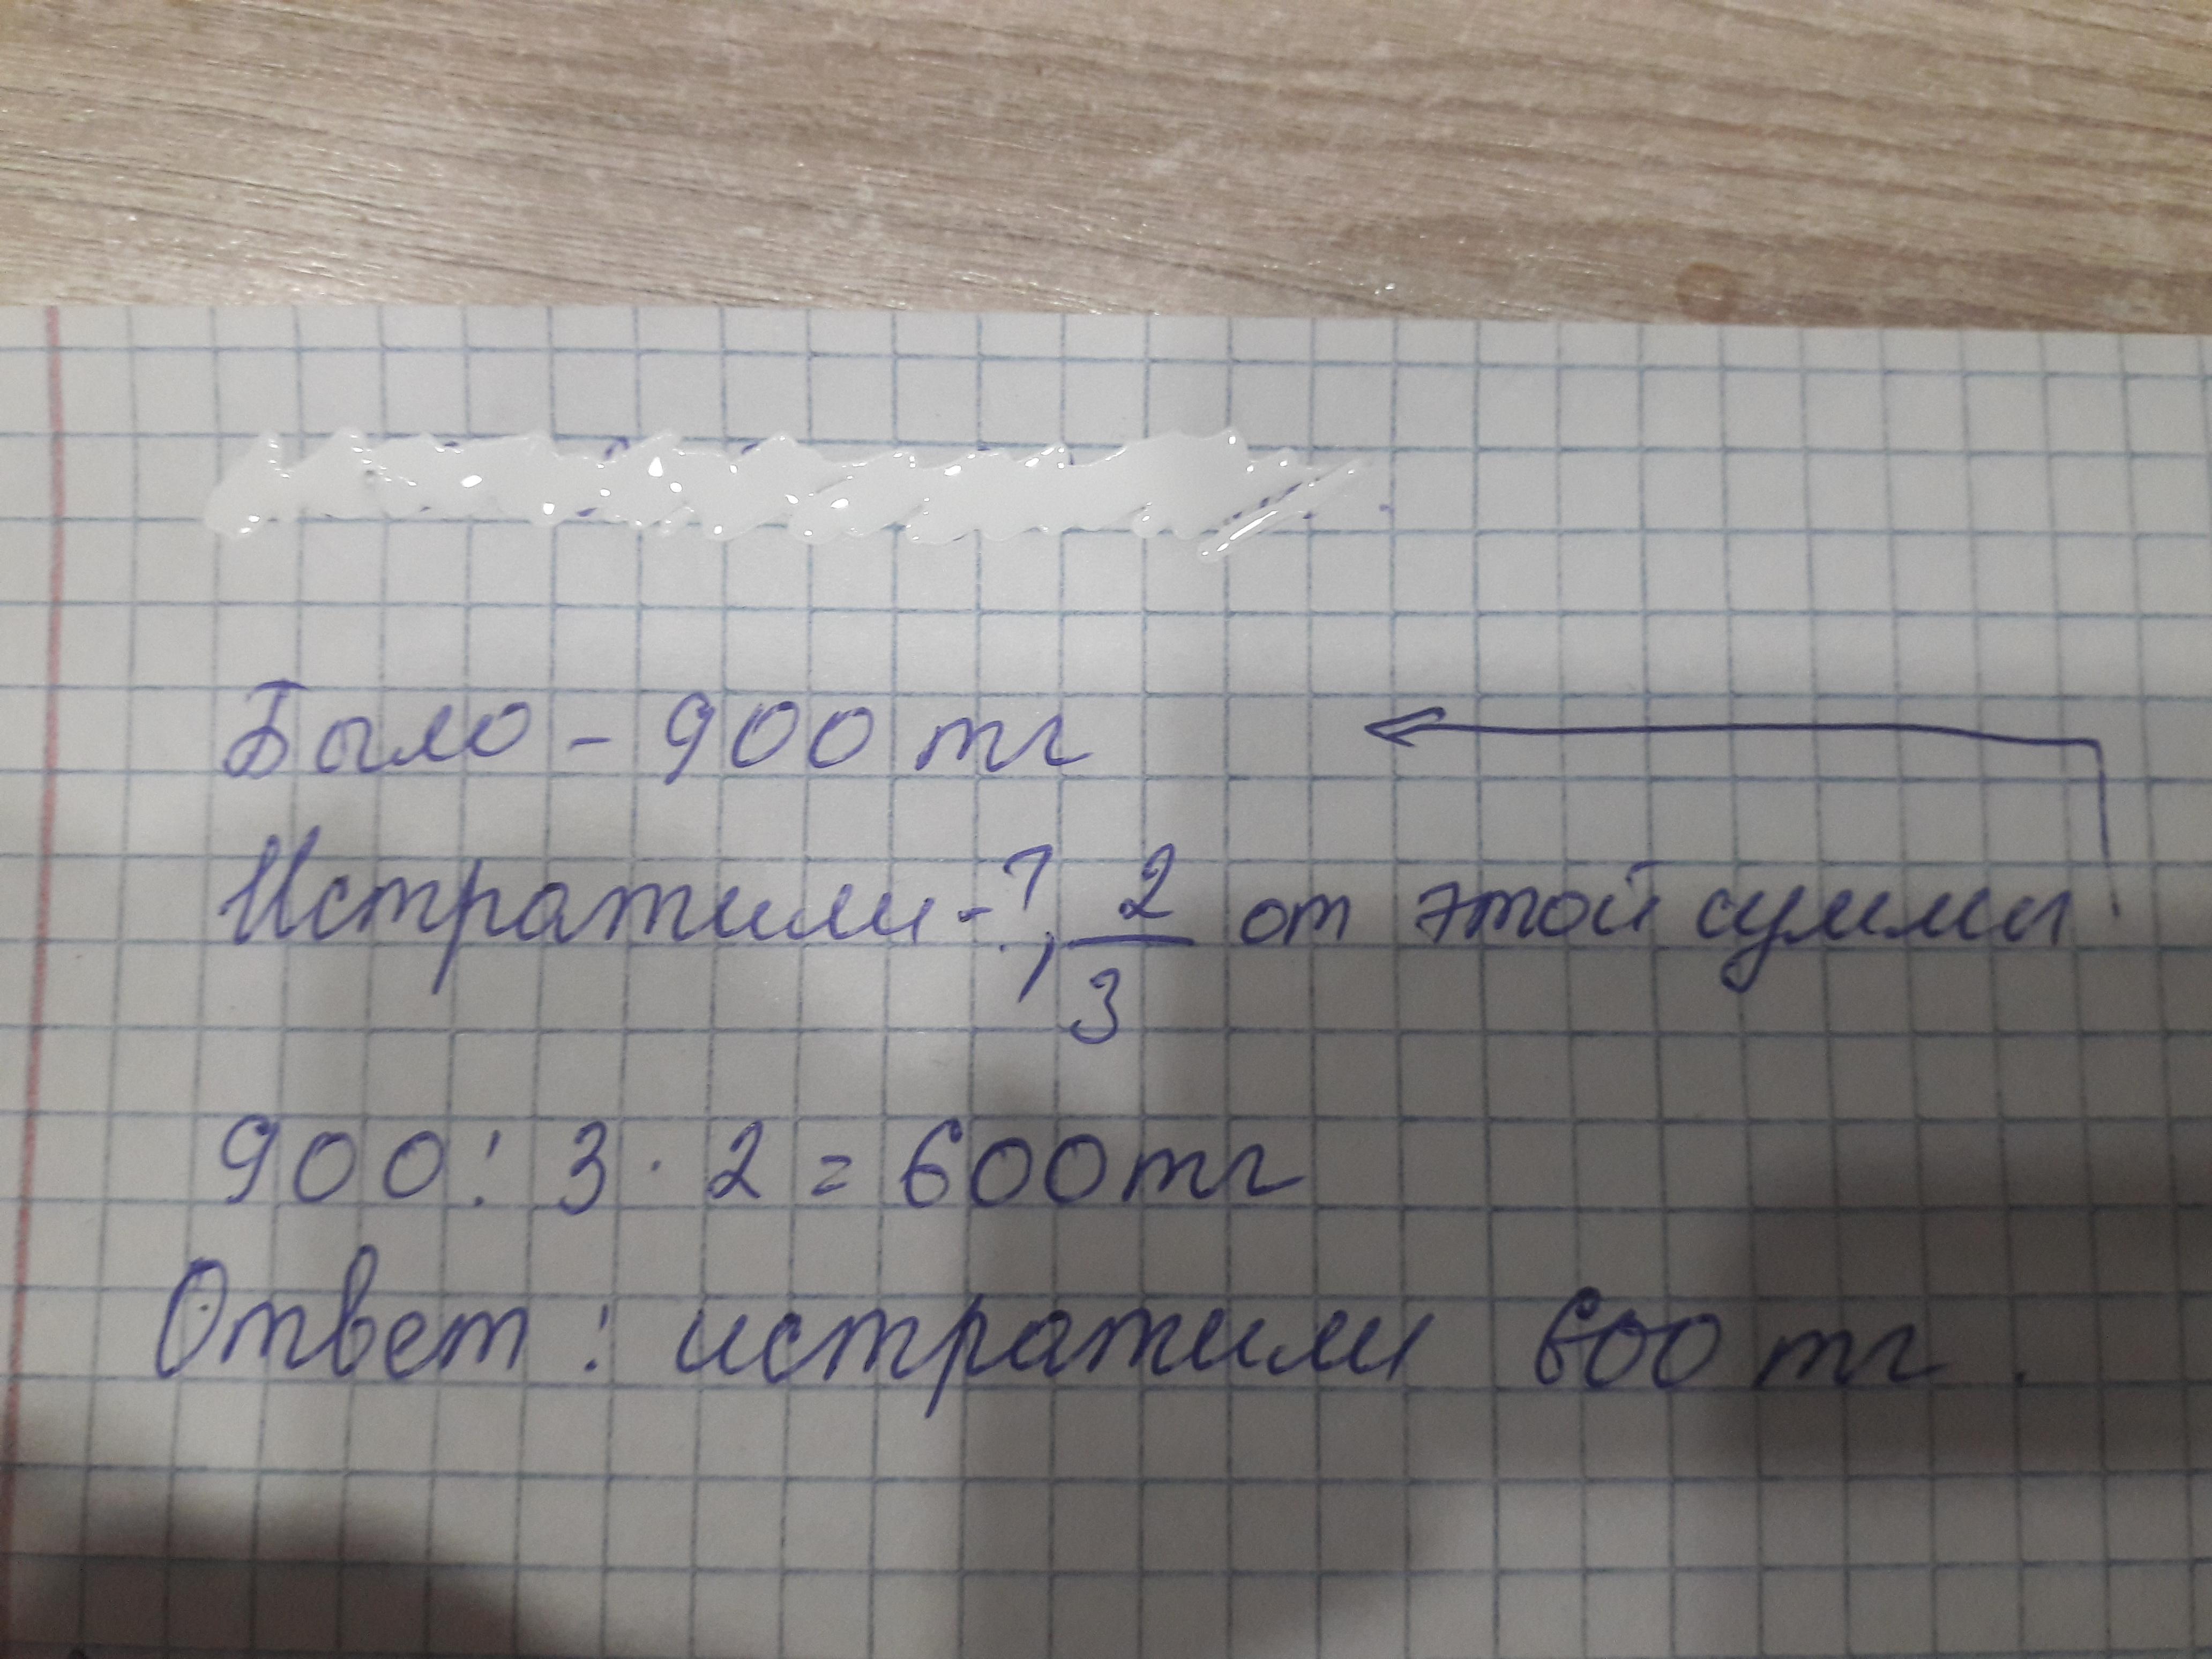 Было - 900 тг
Истратили - ?, 2/3 от этой суммы
900 : 3 · 2 = 600 тг
Ответ : истратили 600 тг .